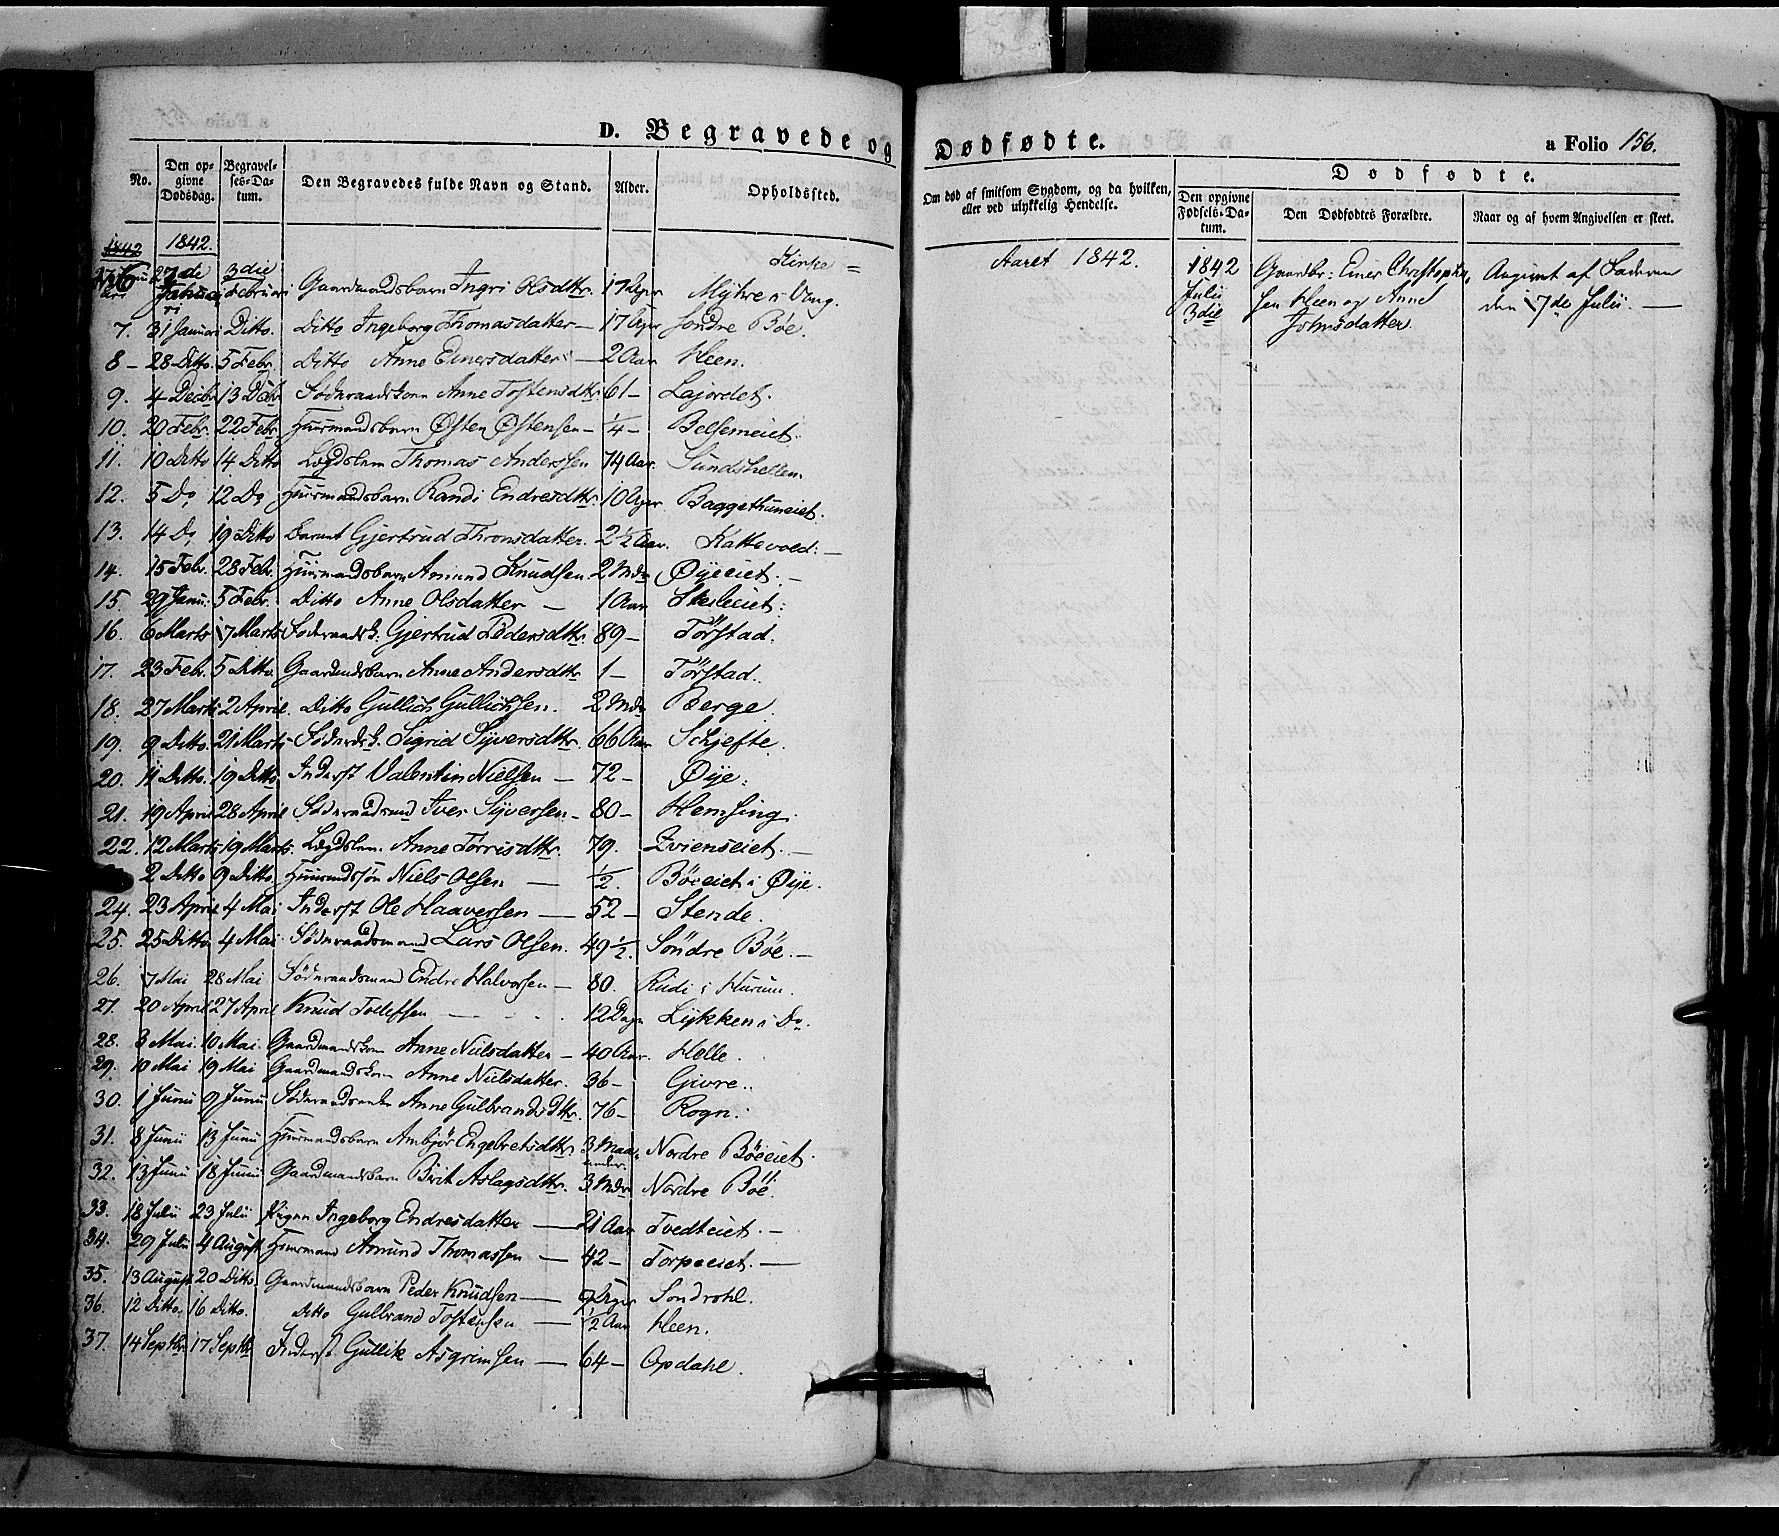 D. Begravede og Dødfødte. a Folio 156.
No. Den opgivne Dødsdag. Begravelses-Datum. Den Begravedes fulde Navn og Stand. Alder. Opholdssted. Om død af smitsom Sygdom, og da hvilken, eller ved ulykkelig Hendelse. Dødfødte.
Den opgivne Fødsels-Datum. Den Dødfødtes Forældre. Naar og af hvem Angivelsen er skeet.
1842 1842. Aaret 1842.
6 27de Januari 3die Februari Gaardmandsbarn Ingri Olsdttr. 17 Dger Kirke= Myhre i Vang.
7. 31 Januari Ditto. Ditto Ingeborg Thomasdatter — 17 Dger Söndre Böe.
8 — 28 Ditto. 5 Febr. Ditto Anne Einersdatter — 2 Aar Heen.
9. 4 Decbr 13 Dcbr Föderaadskone Anne Tostensdttr 61 — Lajordet.
10. 20 Febr. 22 Febr. Huusmandsbarn Østen Østensen — ¼ — Belsemeiet.
11. 10 Ditto 14 Ditto Lægdslem Thomas Anderssen 74 Aar. Sundshellen.
12. 5 Do 12 Do Huusmandsbarn Randi Endresdttr. 10 Dger Baggethuneiet.
13. 14 Do 19 Ditto Barnet Gjertrud Thronsdatter. 2½ Aar. Kattevold: —
14. 15 Febr. 28 Febr. Huusmandsbarn Amund Knudsen. 2 Mdr Øyeeiet. —
15. 29 Janu: 5 Febr. Ditto Anne Olsdatter — 1 Aar
16. 6 Marts 17 Marts Föderaadsk: Gjertrud Pedersdttr. 89 — Törstad.
17. 23 Febr. 5 Ditto. Gaardmdsbarn Anne Andersdttr 1 — Törstad.
18. 27 Marts 2 April. Ditto Gullich Gullichsen. 2 Mdr Berge.
19. 9 Ditto. 21 Marts Föderdsk. Sigrid Syversdttr. 66 Aar Schjefte.
20. 11 Ditto. 19 Ditto. Inderst Valentin Nielsen — 72 — Øye:
21. 19 April 28 April Föderaadsmd Iver Syversen — 80 — Hemsing.
22. 12 Marts 19 Marts. Lægdslem. Anne Torrisdttr. 79. Qvienseiet. —
2 Ditto 9 Ditto. Huusmdssön Niels Olsen — ½. Böeeiet i Øye.
24. 23 April 4 Mai Inderst Ole Haaversen — 52 — Stende.
25. 25 Ditto 4 Mai Föderaadsmand Lars Olsen. 49½. Söndre Böe. —
26. 7 Mai 28 Mai Föderaadsmand Endre Halvorsen — 80. Rudi i Hurum.
27. 20 April 27 April Knud Tollefsen — 12 Dage Lykken i Do.
28. 3 Mai. 10 Mai. Gaardmandskone Anne Nielsdatter — 40 Aar. Holle.
29. 10 Mai 19 Mai Gaardmandskone Anne Nielsdatter. 36 — Givre..
30. 1 Junii 9 Junii Anne Gulbrandsdttr. 76 — Rogn.
31. 8 Junii 13 Junii Huusmandsbarn Ambjör Engebretsdttr. 3 Maaneder. Nordre Böeeiet.
32. 13 Junii 18 Junii Gaardmandsbarn Birit Aslagsdttr. 3 Mdr Nordre Böe.
33. 18 Julii 23 Julii Pigen Ingeborg Endresdatter — 21 Aar Tvedteiet. —
34. 29 Julii 4 August Huusmand Amund Thomassen — 42 — Torpeeiet. —
35. 13 August 20 Ditto. Gaardmandsbarn Peder Knudsen — 9 Dger Sondrohl.
36. 12 Ditto. 16 Ditto. Ditto Gulbrand Tostensen — ½ Aar Heen.
37. 14 Septbr 17 Septbr Inderst Gullik Asgrimsen — 64 — Opdahl.
1842 Julii 3die
Gaardbr: Einer Christophersen Heen og Anne Johnsdatter.
Angivet af Faderen den 17de Julii. —